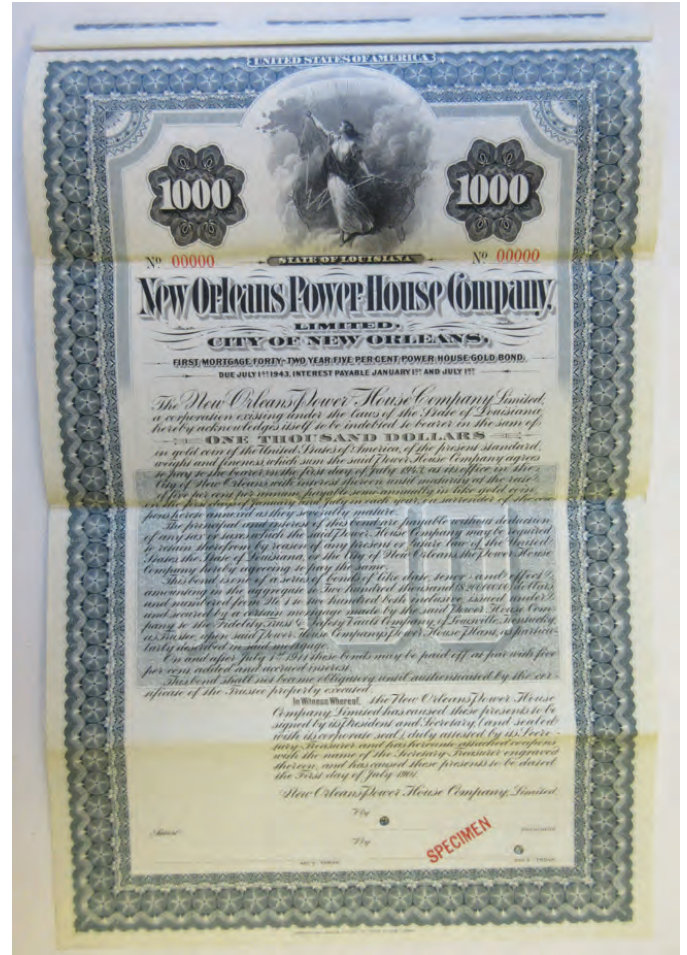 UNITED STATES OF AMERICA
1000 1000
Nº 00000 STATE OF LOUISIANA Nº 00000
New Orleans Power-House Company,
LIMITED,
CITY OF NEW ORLEANS,
FIRST MORTGAGE FORTY-TWO YEAR FIVE PER CENT POWER HOUSE GOLD BOND.
DUE JULY 1ST 1943, INTEREST PAYABLE JANUARY 1ST AND JULY 1ST
The New Orleans Power House Company Limited,
a corporation existing under the Laws of the State of Louisiana,
hereby acknowledges itself to be indebted to bearer in the sum of
ONE THOUSAND DOLLARS
in gold coin of the United States of America, of the present standard,
weight and fineness, which sum the said Power House Company agrees
to pay to the bearer on the first day of July 1943, at its office in the
City of New Orleans with interest thereon until maturity at the rate
of five per cent per annum, payable semi-annually in like gold coin
on the first days of January and July in each year, on surrender of the cou-
pons hereto annexed as they severally mature.
The principal and interest of this bond are payable without deduction
of any tax or taxes which the said Power House Company may be required
to retain therefrom by reason of any present or future law of the United
States, the State of Louisiana, or the City of New Orleans, the Power House
Company hereby agreeing to pay the same.
This bond is one of a series of bonds of like date, tenor and effect
amounting in the aggregate to two hundred thousand ($200,000.00) dollars
and numbered from No 1 to two hundred both inclusive, issued under
and secured by a certain mortgage made by the said Power House Com-
pany to the Fidelity Trust & Safety Vault Company, of Louisville, Kentucky,
as Trustee, upon said Power House Company's Power House Plant, as particu-
larly described in said mortgage.
On and after July 1st 1911 these bonds may be paid off at par with five
per cent added and accrued interest.
This bond shall not become obligatory until authenticated by the cer-
tificate of the Trustee properly executed.
In Witness Whereof, the New Orleans Power House
Company Limited has caused these presents to be
signed by its President and Secretary, (and sealed
with its corporate seal), duly attested by its Secre-
tary-Treasurer and has hereunto attached coupons
with the name of the Secretary-Treasurer engraved
thereon, and has caused these presents to be dated
the First day of July 1901.
New Orleans Power House Company, Limited
By
Attest: PRESIDENT
By
SPECIMEN
SEC'Y. - TREAS. SEC'Y. - TREAS.